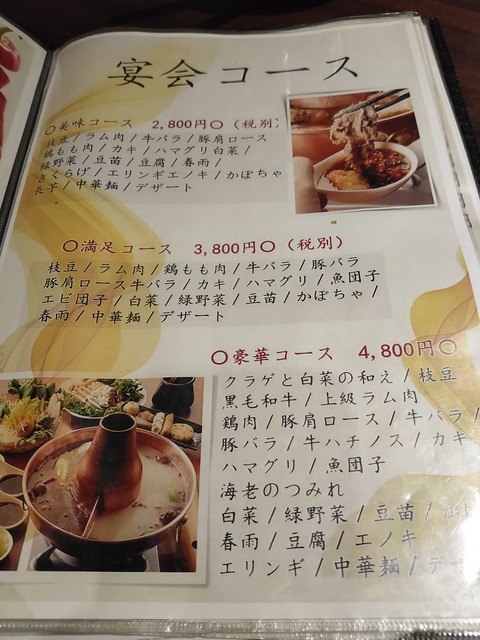 宴会コース
〇美味コース 2,800円〇（税別）
枝豆/ラム肉/牛バラ/豚肩ロース
鶏もも肉/カキ/ハマグリ白菜/
緑野菜/豆苗/豆腐/春雨/
きくらげ/エリンギエノキ/かぼちゃ
長芋/中華麺/デザート
〇満足コース 3,800円〇（税別）
枝豆/ラム肉/鶏もも肉/牛バラ/豚バラ
豚肩ロース牛バラ/カキ/ハマグリ/魚団子
エビ団子/白菜/緑野菜/豆苗/かぼちゃ/
春雨/中華麺/デザート
〇豪華コース 4,800円〇
クラゲと白菜の和え/枝豆
黒毛和牛/上級ラム肉
鶏肉/豚肩ロース/牛バラ/
豚バラ/牛ハチノス/カキ
ハマグリ/魚団子
海老のつみれ
白菜/緑野菜/豆苗/
春雨/豆腐/エノキ
エリンギ/中華麺/デ